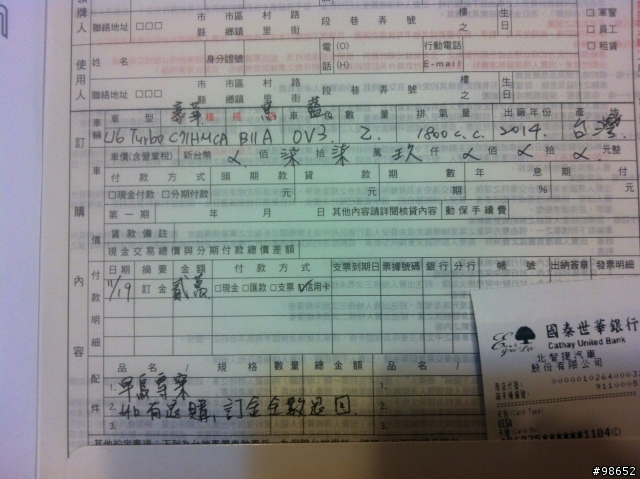 聯絡地址 □□□ 市 縣 市區 鄉鎮 村 里 路 街 段 巷 弄 號 樓 之 生日 □軍警
□員工
使用人 姓名 身分證號 電話 (O) (H) 行動電話 E-mail □租賃
聯絡地址 □□□ 市 縣 市區 鄉鎮 村 里 路 街 段 巷 弄 號 樓 之 生日
訂購內容 車輛 車型 豪華 藍 數量 排氣量 出廠年份 產地
U6 Turbo C71HMCA B11A 0V3. 2. 1800 c.c. 2014. 台灣
車價(含營業稅) 新台幣 佰 柒 拾 柒 萬 玖 仟 佰 拾 元整
車價 付款方式 頭期款 貸款 期數 年息 期付
□現金付款 □分期付款 元 元 期 % 元
第一期 年 月 日 其他內容請詳閱核貸內容 動保手續費
貸款備註
現金交易總價與分期付款總價差額
付款明細 日期 摘要 金額 付款方式 支票到期日 票據號碼 銀行 分行 帳號 出納簽章 發票明細
11/19 訂金 貳萬 □現金 □匯款 □支票 ☑信用卡
配件 品名 / 規格 數量 總金額 品名 /
1.
2. 如有退購,訂金全數退回.
3. 3.
國泰世華銀行
Cathay United Bank
北智捷汽車
股份有限公司
VISA
1104(C)
#98652